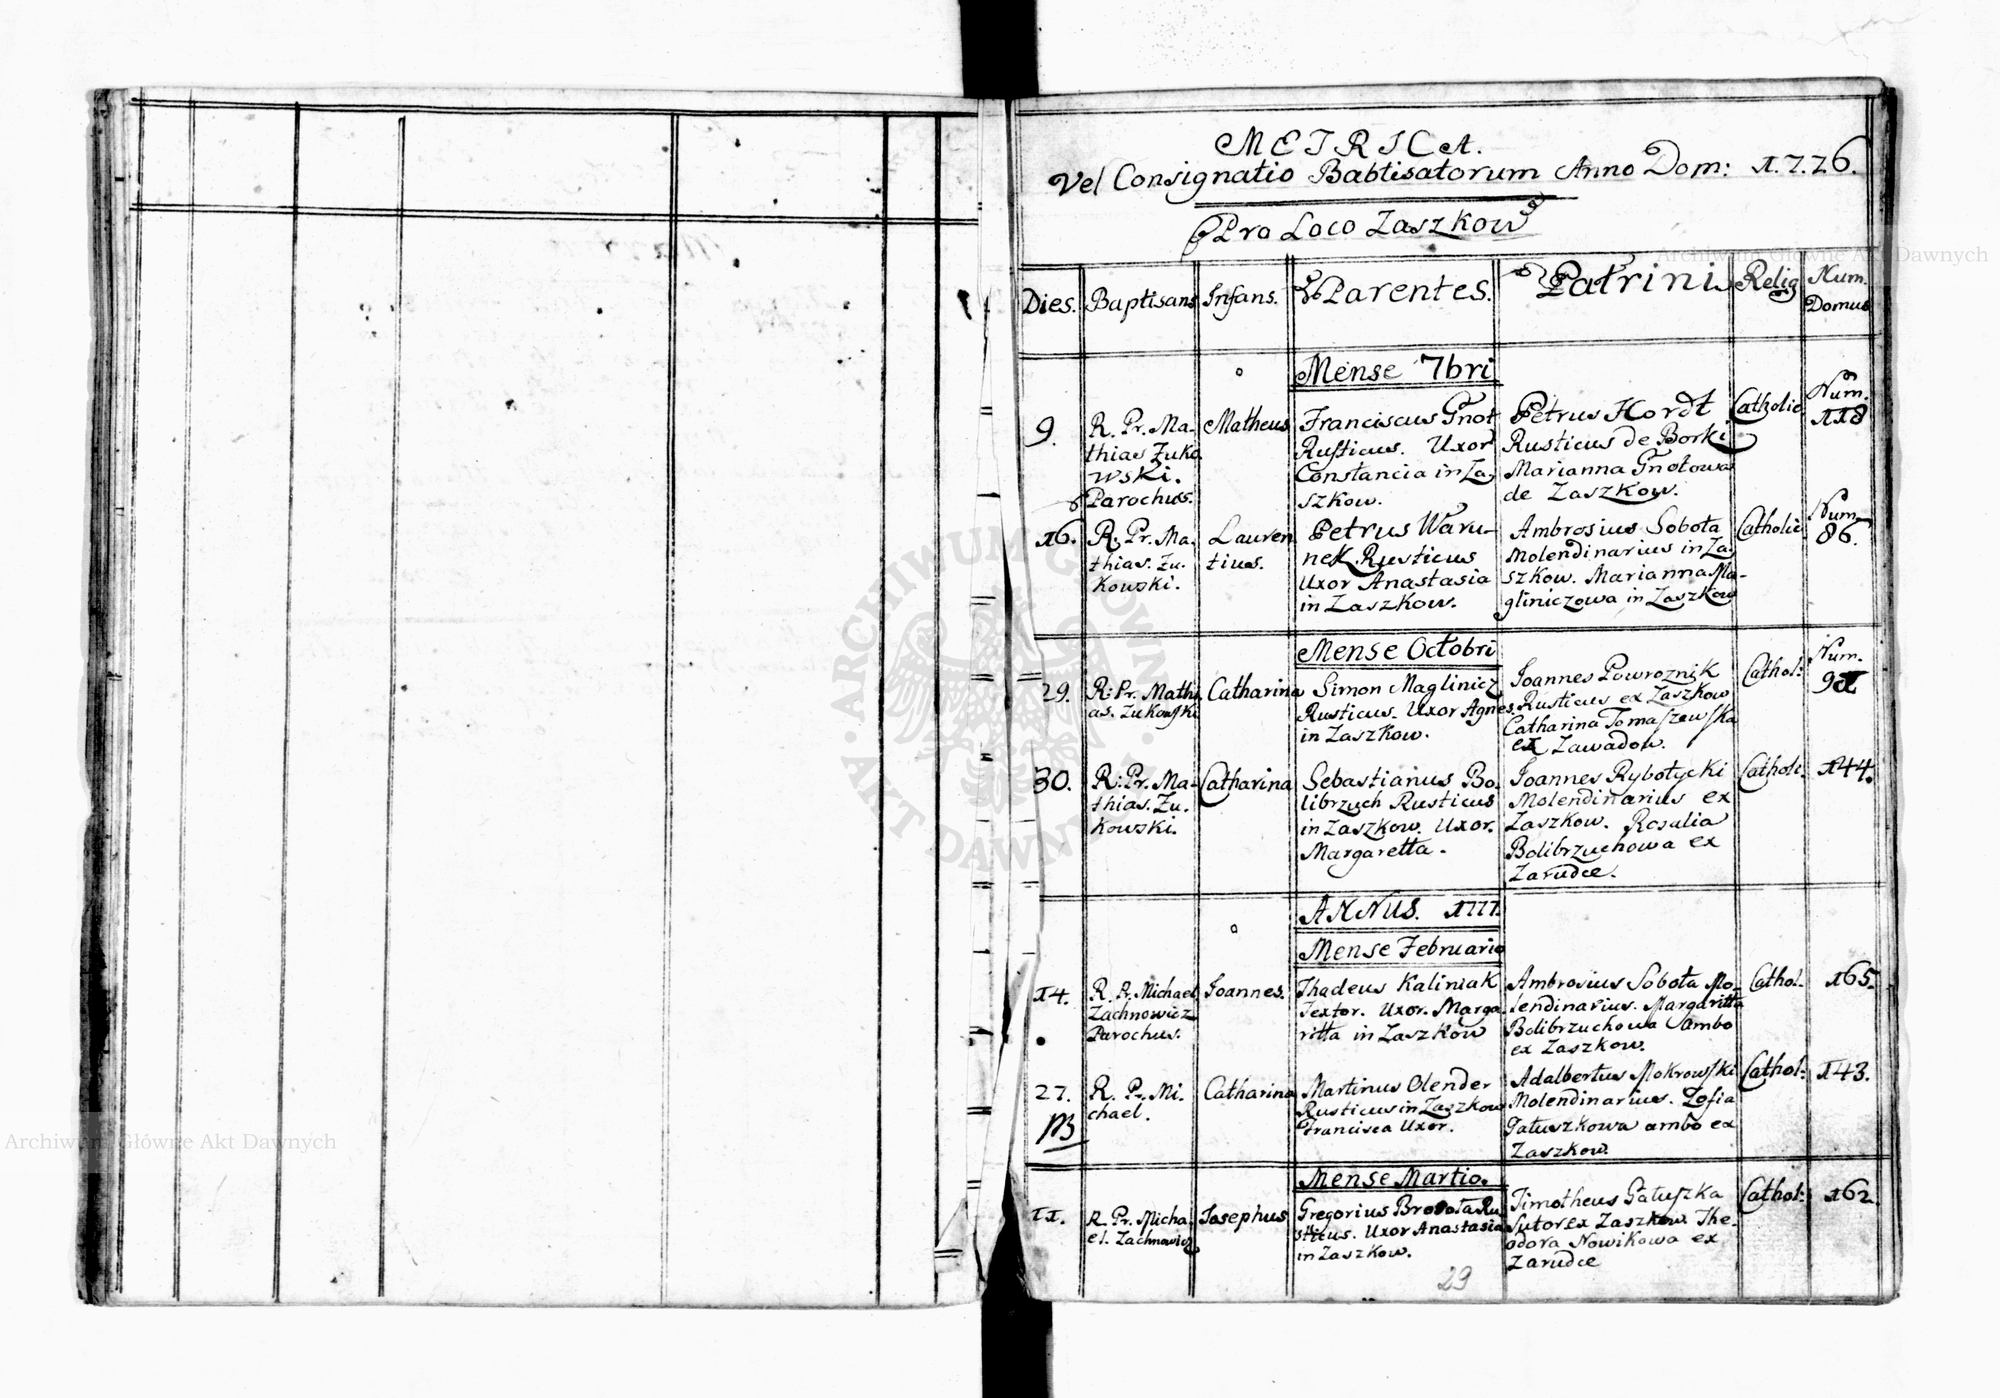 METRICA.
Vel Consignatio Babtisatorum Anno Dom: 1776.
Pro Loco Zaszkow
Dies. Baptisans Infans. Parentes. Patrini Relig Num. Domus
Mense 7bri
9.
R. Pr. Ma-
thias Zuko
wski.
Parochus.
Matheus
Franciscus Gnot
Rusticus. Uxor
Constancia in Za
szkow.
Petrus Hordt
Rusticus de Borki
Marianna Gnotowa
de Zaszkow.
Catholic
Num.
118
16.
R. Pr. Ma.
thias. Zu.
kowski.
Lauren
tius.
Petrus Waru-
nek. Rusticus
Uxor Anastasia
in Zaszkow.
Ambrosius Sobota
Molendinarius in Za
szkow. Marianna Ma-
gliniczowa in Zaszkow
Catholic
Num.
86.
Mense Octobri
29.
R: Pr. Mathi
as. Zukowski
Catharina
Simon Maglinicz
Rusticus. Uxor Agnes.
in Zaszkow.
Joannes Powroznik
Rusticus ex Zaszkow
Catharina Tomaszewska
ex Zawadow.
Cathol:
Num.
91
30.
R: Pr. Ma-
thias. Zu.
kowski.
Catharina
Sebastianus Bo.
librzuch Rusticus
in Zaszkow. Uxor.
Margaretta.
Joannes Rybotycki
Molendinarius ex
Zaszkow. Rosalia
Bolibrzuchowa ex
Zarudce.
Cathol:
144.
ANNUS. 1777.
Mense Februario
14.
R. P. Michael
Zachnowicz
Parochus.
Joannes.
Thadeus Kaliniak
Textor. Uxor. Marga
ritta in Zaszkow
Ambrosius Sobota Mo-
lendinarius. Margaritta
Bolibrzuchowa ambo
ex Zaszkow.
Cathol.
165.
27.
R. Pr. Mi.
chael.
Catharina
Martinus Olender
Rusticus in Zaszkow
Francisca Uxor.
Adalbertus Mokrowski
Molendinarius. Zofia
Gatuszkowa ambo ex
Zaszkow.
Cathol:
143.
Mense Martio.
11.
R. Pr. Micha.
el. Zachnowicz
Josephus
Gregorius Brodota Ru
sticus. Uxor Anastasia
in Zaszkow.
Timotheus Gatuszka
Sutor ex Zaszkow. The-
odora Nowikowa ex
Zarudce
Cathol:
162.
29
Archiwum Główne Akt Dawnych
Archiwum Główne Akt Dawnych
ARCHIWUM GŁÓWNE
AKT DAWNYCH